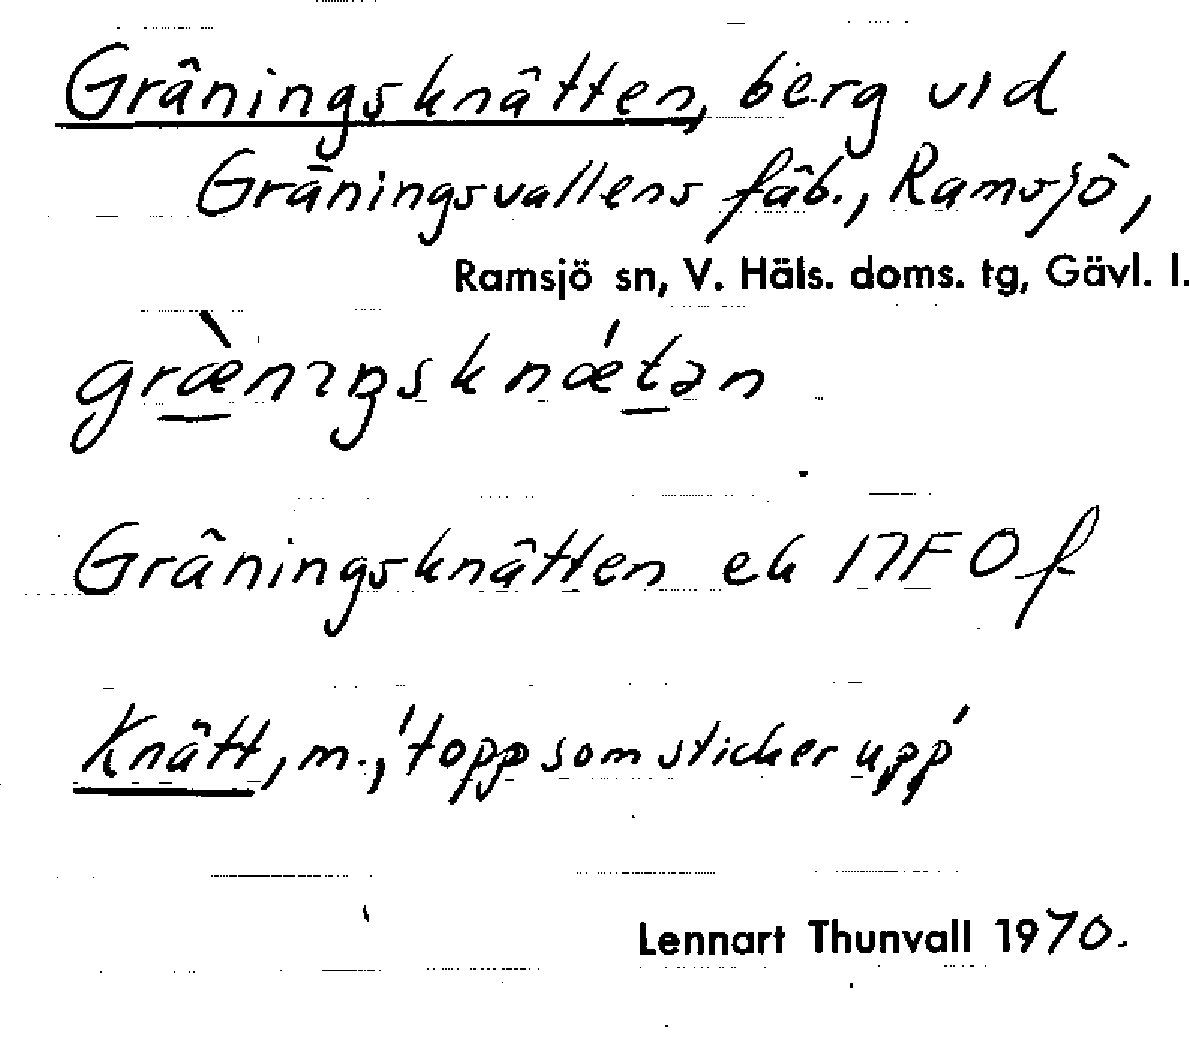 Gräningsknätten, berg vid
Gräningsvallens fäb., Ramsjö,
Ramsjö sn, V. Häls. doms. tg, Gävl. l.
græ̀nıŋsknǽtən
Gräningsknätten ek 17F 0f
Knätt, m., 'topp som sticker upp'
Lennart Thunvall 1970.